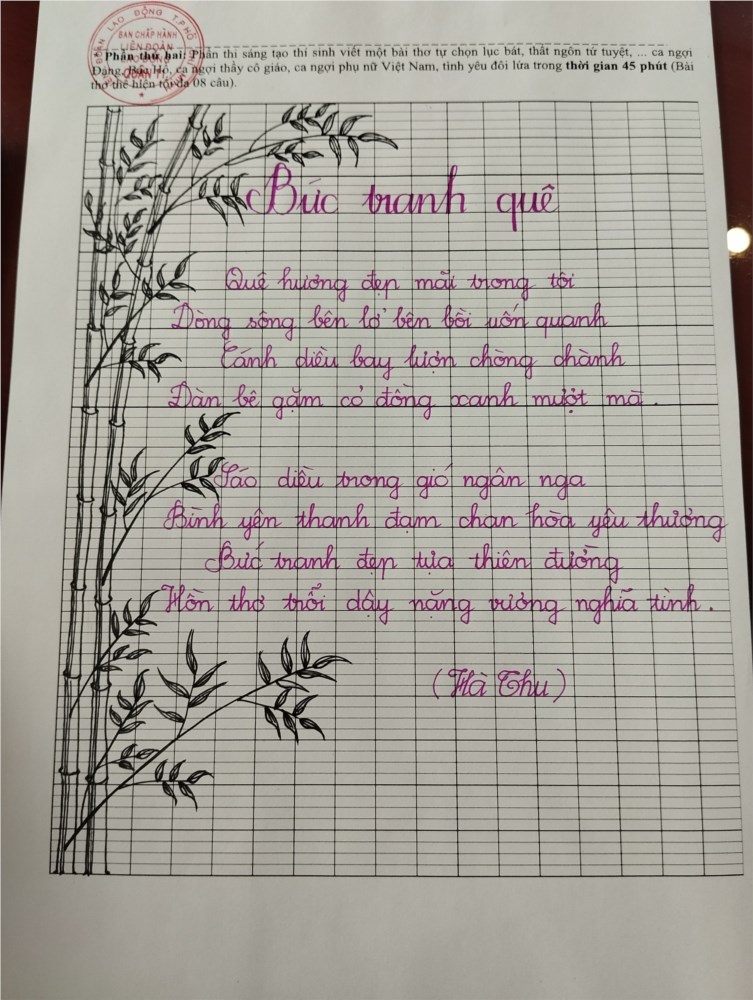 LAO ĐỘNG T.P HỒ
BAN CHẤP HÀNH
LIÊN ĐOÀN
LAO ĐỘNG
QUẬN 11
* Phần thứ hai: Phần thi sáng tạo thí sinh viết một bài thơ tự chọn lục bát, thất ngôn tứ tuyệt, ... ca ngợi
Đảng, Bác Hồ, ca ngợi thầy cô giáo, ca ngợi phụ nữ Việt Nam, tình yêu đôi lứa trong thời gian 45 phút (Bài
thơ thể hiện tối đa 08 câu).
Bức tranh quê
Quê hương đẹp mãi trong tôi
Dòng sông bên lở bên bồi uốn quanh
Cánh diều bay lượn chòng chành
Đàn bê gặm cỏ đồng xanh mượt mà.
Sáo diều trong gió ngân nga
Bình yên thanh đạm chan hòa yêu thương
Bức tranh đẹp tựa thiên đường
Hồn thơ trỗi dậy nặng vương nghĩa tình.
(Hà Thu)